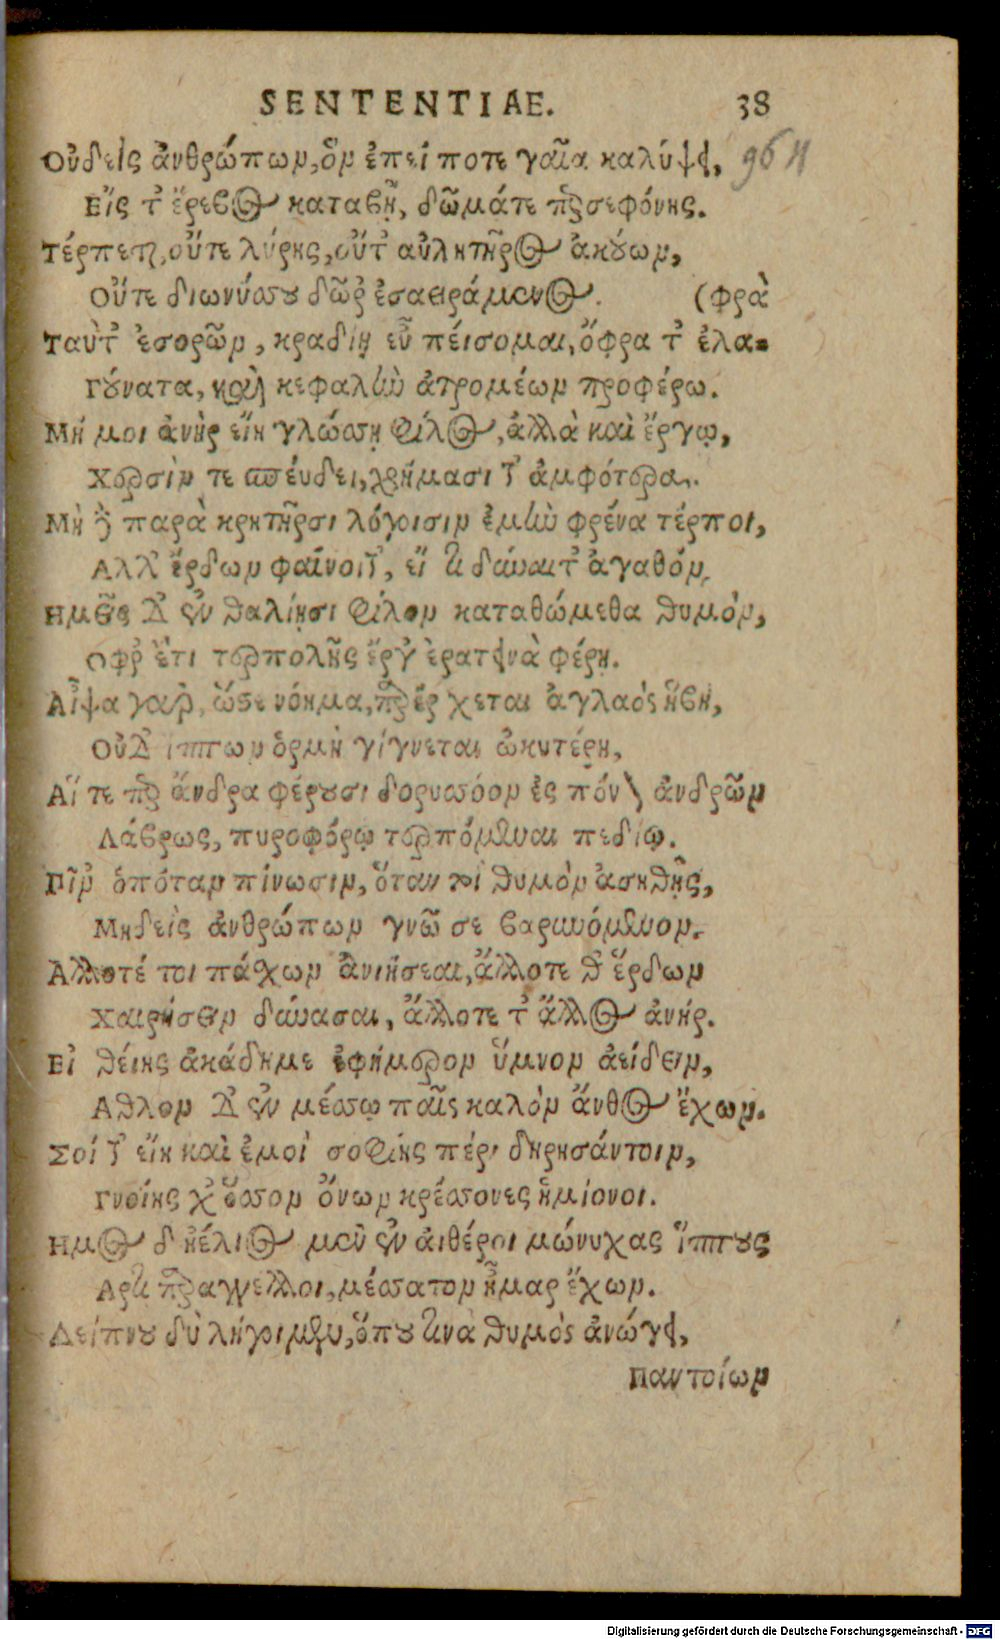 SENTENTIAE. 38
Οὐδεὶς ἀνθρώπων, ὃν ἐπεί ποτε γαῖα καλύψει, 96
Εἴς τ' ἔρεβος καταβῇ, δῶμάτε προσεφόνης.
Τέρπεται, οὔτε λύρης, οὔτ' αὐλητῆρος ἀκούων,
Οὔτε διωνύσου δῶρ' ἐσαειράμενος. (φρὰ
Ταῦτ' ἐσορῶν, κραδίῃ εὖ πείσομαι, ὄφρα τ' ἐλα-
Γούνατα, καὶ κεφαλὴν ἀτρομέων προφέρω.
Μή μοι ἀνὴρ εἴη γλώσσῃ φίλος, ἀλλὰ καὶ ἔργῳ,
Χερσίν τε σπεύδει, χρήμασι τ' ἀμφότερα.
Μὴ δὲ παρὰ κρητῆρσι λόγοισιν ἐμὴν φρένα τέρποι,
Αλλ' ἔρδων φαίνοιτ', εἴ τι δύναιτ' ἀγαθόν,
Ημεῖς δ' ἐν θαλίῃσι φίλον καταθώμεθα θυμὸν,
Οφρ' ἔτι τερπολῆς ἔργ' ἐρατεινὰ φέρῃ.
Αἶψα γὰρ, ὥστε νόημα, παρέρχεται ἀγλαὸς ἥβη,
Οὐδ' ἵππων ὁρμὴ γίγνεται ὠκυτέρη,
Αἵ τε πρὸς ἄνδρα φέρουσι δορυσσόον ἐς πόνον ἀνδρῶν
Λάβρως, πυροφόρῳ τερπόμεναι πεδίῳ.
Πῖν' ὁπόταν πίνωσιν, ὅταν τοι θυμὸν ἀσηθῇς,
Μηδεὶς ἀνθρώπων γνῶ σε βαρυνόμενον.
Αλλοτέ τοι πάσχων ἀνιήσεαι, ἄλλοτε δ' ἔρδων
Χαιρήσειν δύνασαι, ἄλλοτε τ' ἄλλος ἀνήρ.
Εἰ θείης ἀκάδημε ἐφήμερον ὕμνον ἀείδειν,
Αθλον δ' ἐν μέσσῳ παῖς καλὸν ἄνθος ἔχων.
Σοί τ' εἴη καὶ ἐμοὶ σοφίης πέρι δηρησάντοιν,
Γνοίης χ' ὅσσον ὄνων κρέσσονες ἡμίονοι.
Ημος δ' ἠέλιος μὲν ἐν αἰθέροι μώνυχας ἵππους
Αρτι παραγγέλλοι, μέσσατον ἦμαρ ἔχων.
Δείπνου δὺ λήγοιμεν, ὅπου τινὰ θυμὸς ἀνώγει,
Παντοίων
Digitalisierung gefördert durch die Deutsche Forschungsgemeinschaft - DFG